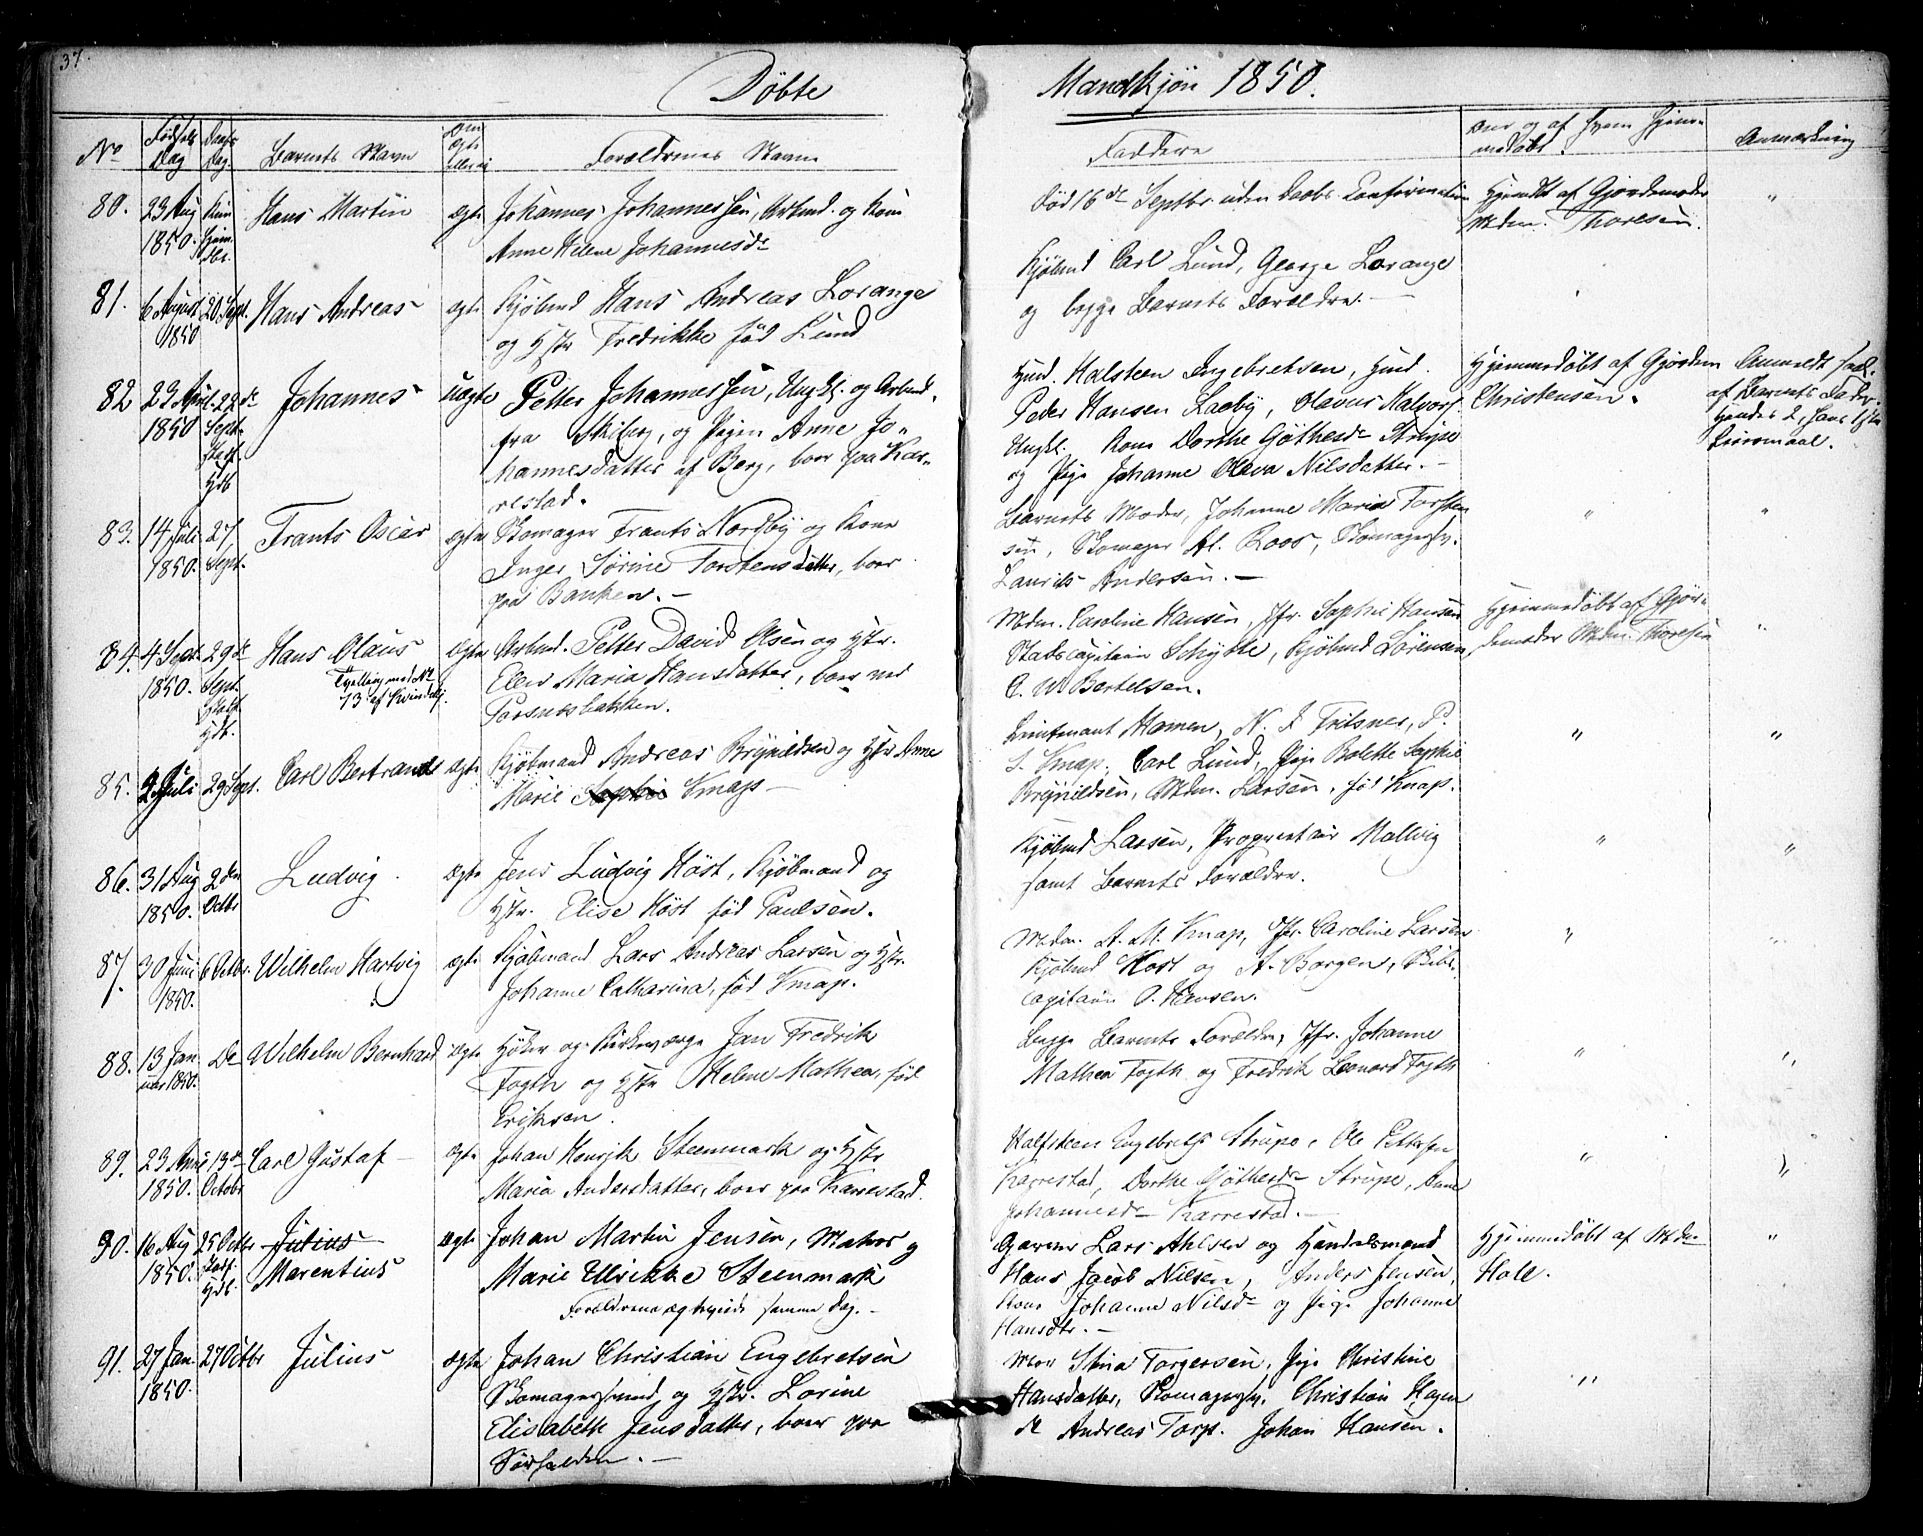 37.
Döbte Mandkjön 1850.
No Fødsels Dag Daabs Dag Barnets Navn Om Ægte eller ei Forældrenes Navn Faddere Naar og af hvem hjemmedøbt. Anmærkning
80. 23 Aug 1850. Hans Martin ægte Johannes Johannessen, Arbmd. og Kone
Anne Helene Johannesdr
Död 16de Septbr. uden Daabs Confirmation Hjemdt af Gjordemoder
Mdm. Thoresen. "
81. 6 August 1850 20 Sept. Hans Andreas ægte Kjøbmd Hans Andreas Lorange
og Hstr Fredrikke fød Lund
Kjöbmd Carl Lund, George Lorange
og begge Barnets Forældre. —
82 23 1850 22de Sept. Johannes uægte Petter Johannessen, Ungk. og Arbmd.
fra Skiberg, og Pigen Anne Jo-
hannesdatter af Berg, boer paa Kar-
restad.
Hmd. Halsteen Ingebretsen, Hmd.
Peder Hansen Raaby, Olavus Halvors.
Ungk. Kone Dorthe Göthesdr Strupe
og Pige Johanne Oleva Nilsdatter. —
Hjemmedøbt af Gjordem
Christensen.
Anmeldt som
af Barnets Fader.
Hendes 2, hans 1ste
Leiermaal.
83. 14 Juli 1850. 27 Sept. Frants Oscar ægte Skomager Frants Nordby og Kone
Inger Sörine Torstensdatter, boer
paa Banken. —
Barnets Moder, Johanne Maria Torsten
sen, Skomager Al. Roos, Skomagersv.
Laurits Andersen. — " "
84. 4 Sept. 1850. 29de Sept. Hdb. Hans Olaus
Tvilling med No
73 af Kvindekj.
ægte Arbmd. Petter David Olsen og Hstr.
Elen Maria Hansdatter, boer ved
Torsnæsbakken.
Mdm. Caroline Hansen, Jfr. Sophie Hansen
Stadscapitain Schytte, Kjöbmd Sörensen,
C. W. Bertelsen.
Hjemmedøbt af Gjor-
demoder Mdm. Thoresen "
85. 2 Juli 29 Sept. Carl Bertrand ægte Kjøbmand Andreas Brynildsen og Hstr Anne
Marie Sophie Knap —
Lieutenant Mamen, N. J. Frisner, P.
L. Knap, Carl Lund, Pige Bolette Sophie
Brynildsen, Mdm. Larsen, fød Knap. " "
86. 31 Aug 1850. 2den Octbr Ludvig. ægte Jens Ludvig Höst, Kjöbmand og
Hstr. Elise Höst fød Paulsen.
Kjöbmd Larsen, Proprietair Mallvig
samt Barnets Forældre. " "
87. 30 Juni 1850. 6 Octbr. Wilhelm Hartvig ægte Kjøbmand Lars Andreas Larsen og Hstr.
Johanne Catharina, fød Knap.
Mdm. A. M. Knap, Jfr. Caroline Larsen
Kjöbmd Höst og A. Borgen, Skibs-
capitain P. Hansen. " "
88. 13 Januar 1850. Do Wilhelm Bernhard ægte Høker og Kirkeværge Jan Fredrik
Fogth og Hstr Helene Mathea, fød
Eriksen.
Begge Barnets Forældre, Jfr. Johanne
Mathea Fogth og Fredrik Leonard Fogth " "
89. 23 1850. 13de Octobr Carl Gustaf — ægte Johan Henrik Steenmark og Hstr
Maria Andersdatter, boer paa Karrestad.
Halfsteen Engebretss Strupe, Ole Pettersen
Karrestad, Dorthe Göthesdr Strupe, Anne
Johannesdr Karrestad. — " "
90. 16 Aug 1850. 25 Octbr Hdb. Julius
Marentius
ægte Johan Martin Jensen, Matros og
Marie Ulrikke Steenmark
Forældrene ægteviede samme Dag. —
Garver Lars Ahlsen og Handelsmand
Hans Jacob Nilsen, Anders Jensen,
Kone Johanne Nilsdr og Pige Johanne
Hansdtr. —
Hjemmedøbt af Mdm
Holl. "
91. 27 Jan. 1850. 27 Octbr Julius ægte Johan Christian Engebretsen
Skomagersvend og Hstr. Lorine
Elisabeth Jensdatter, boer paa
Sörhalden. —
Mdm Stina Torgersen, Pige Christine
Hansdatter, Skomagersv. Christian Hagen
&c Andreas Torp. Johan Hansen. "